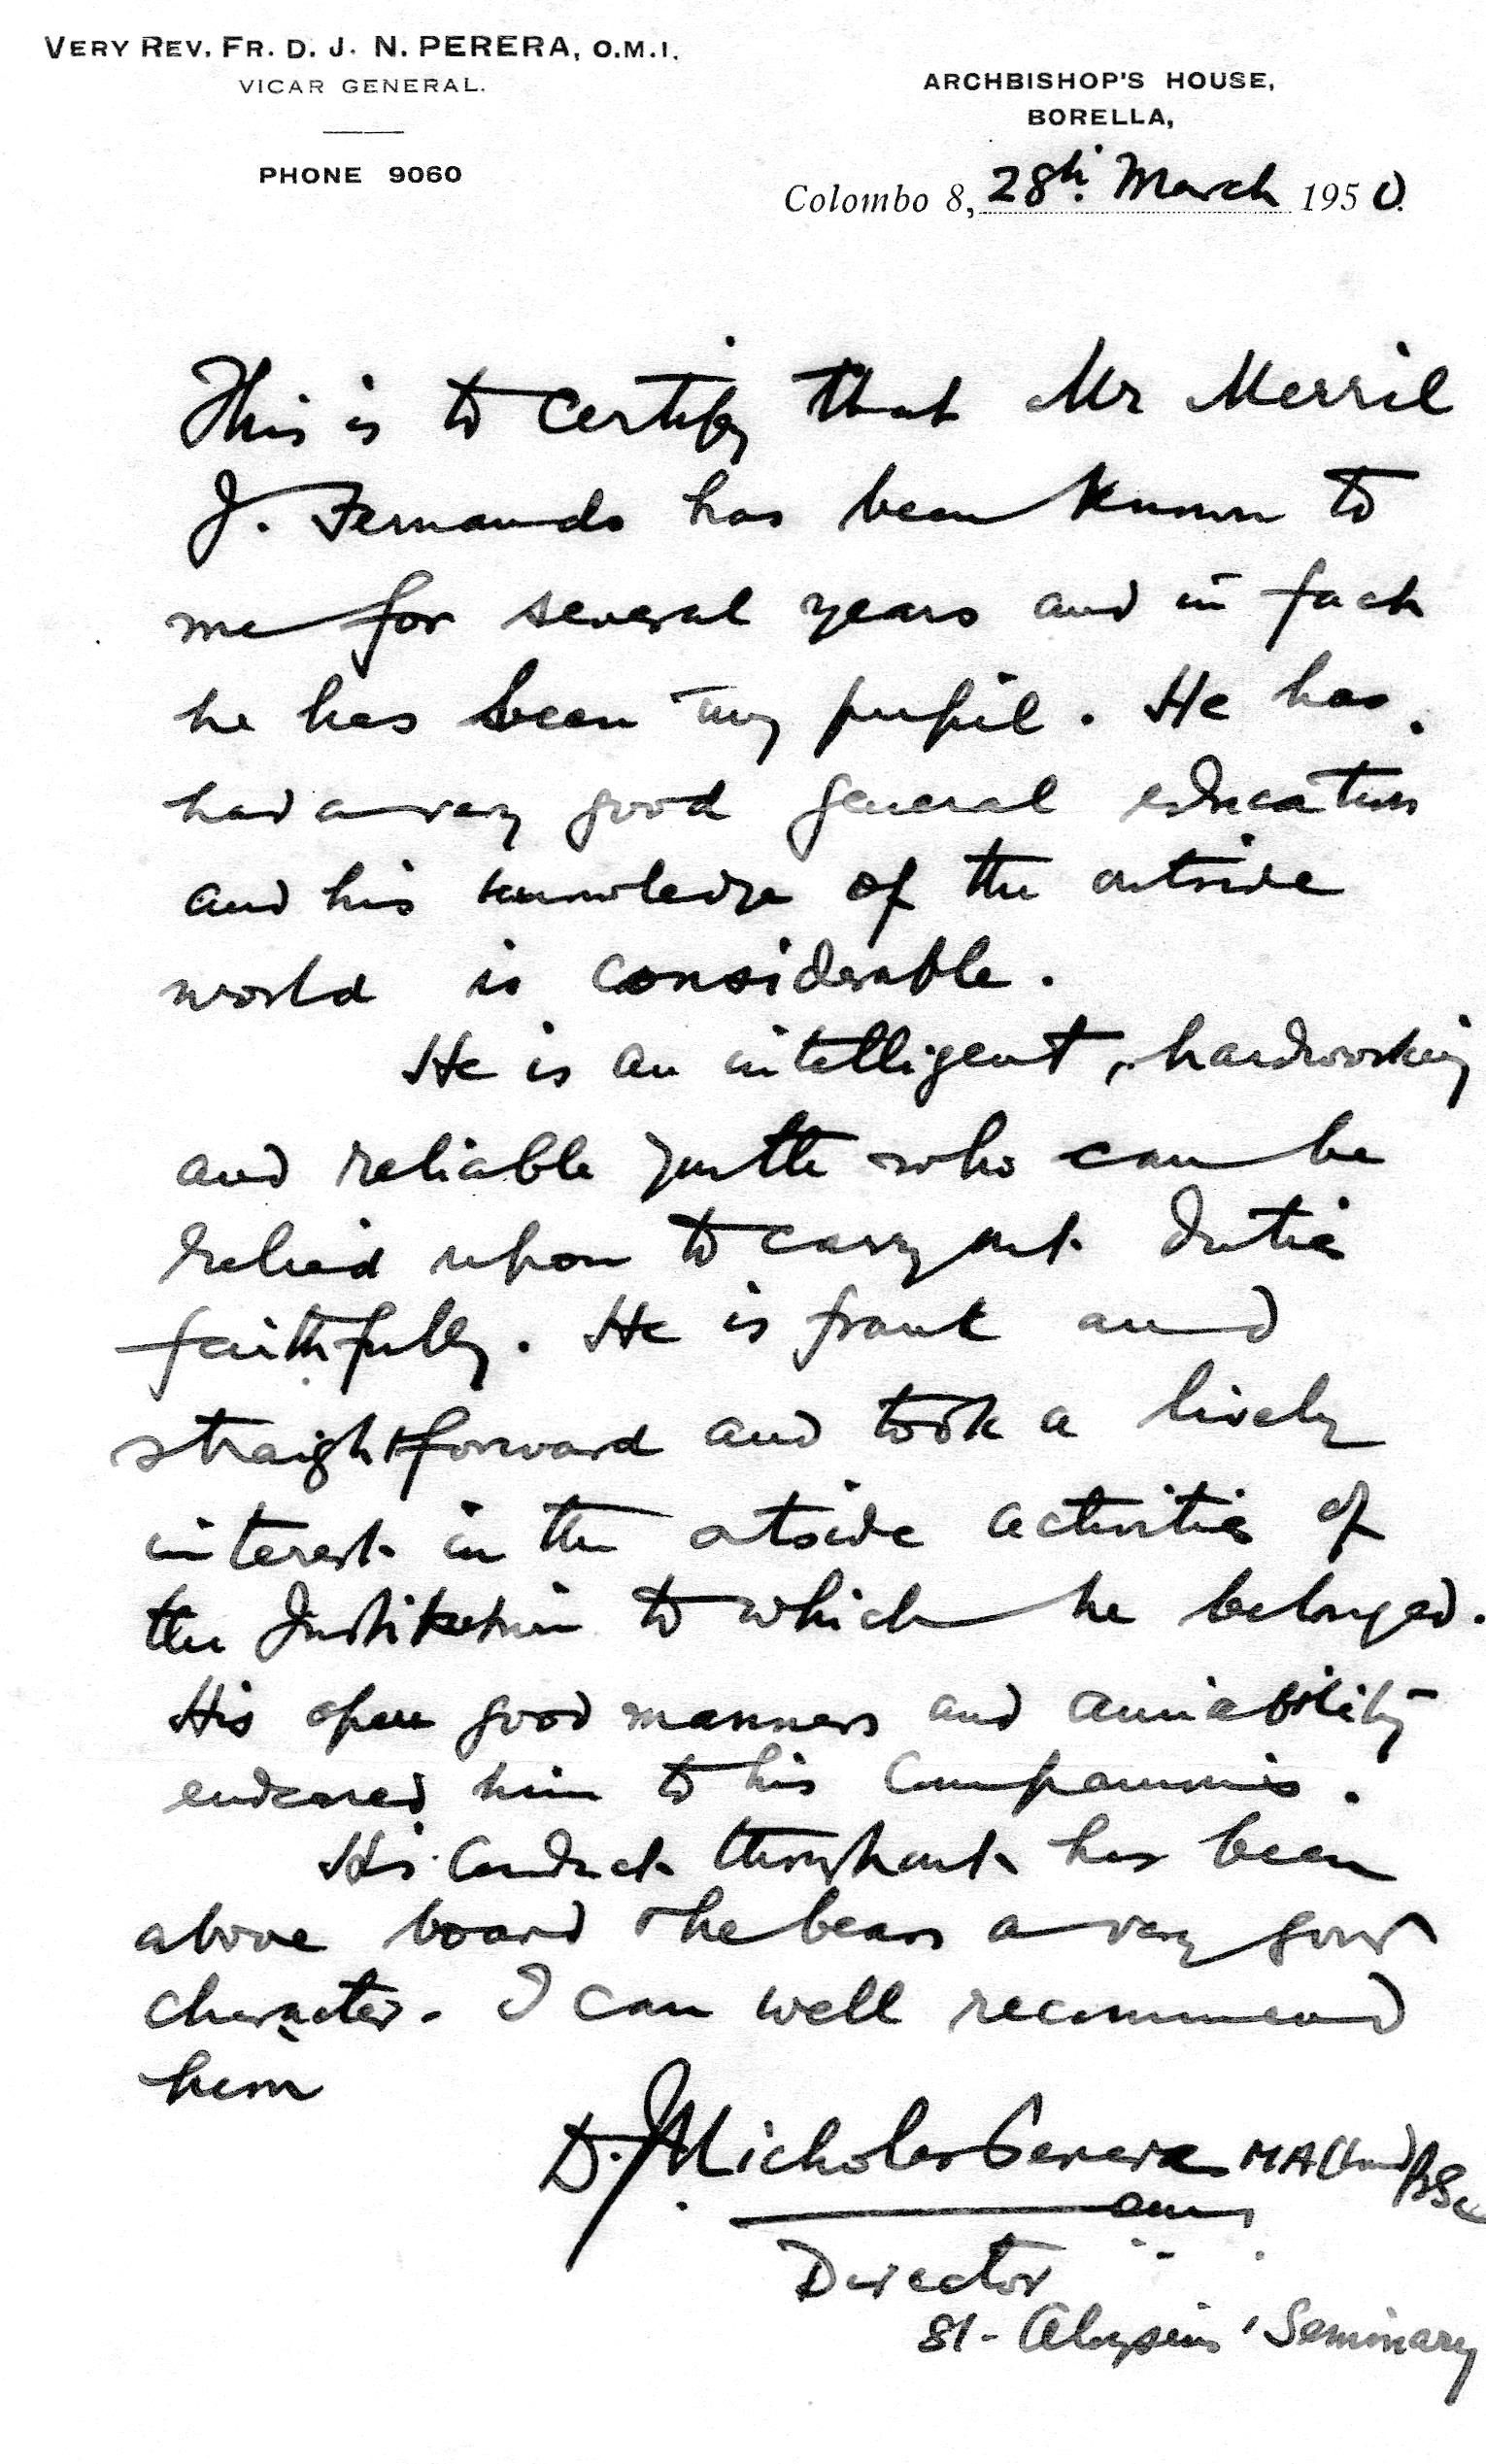 VERY REV. FR. D. J. N. PERERA, O.M.I.
VICAR GENERAL.
PHONE 9060
ARCHBISHOP'S HOUSE,
BORELLA,
Colombo 8, 28th. March 1950.
This is to certify that Mr Merril
J. Fernando has been known to
me for several years and in fact
he has been my pupil. He has
had a very good general education
and his knowledge of the outside
world is considerable.
He is an intelligent, hardworking
and reliable youth who can be
relied upon to carry out duties
faithfully. He is frank and
straightforward and took a lively
interest in the outside activities of
the Institution to which he belonged.
His open good manners and amiability
endeared him to his companions.
His conduct throughout has been
above board & he bears a very good
character. I can well recommend
him
D. J. Nicholas Perera MA (Lond) BSc
omi
Director
St. Aloysius' Seminary